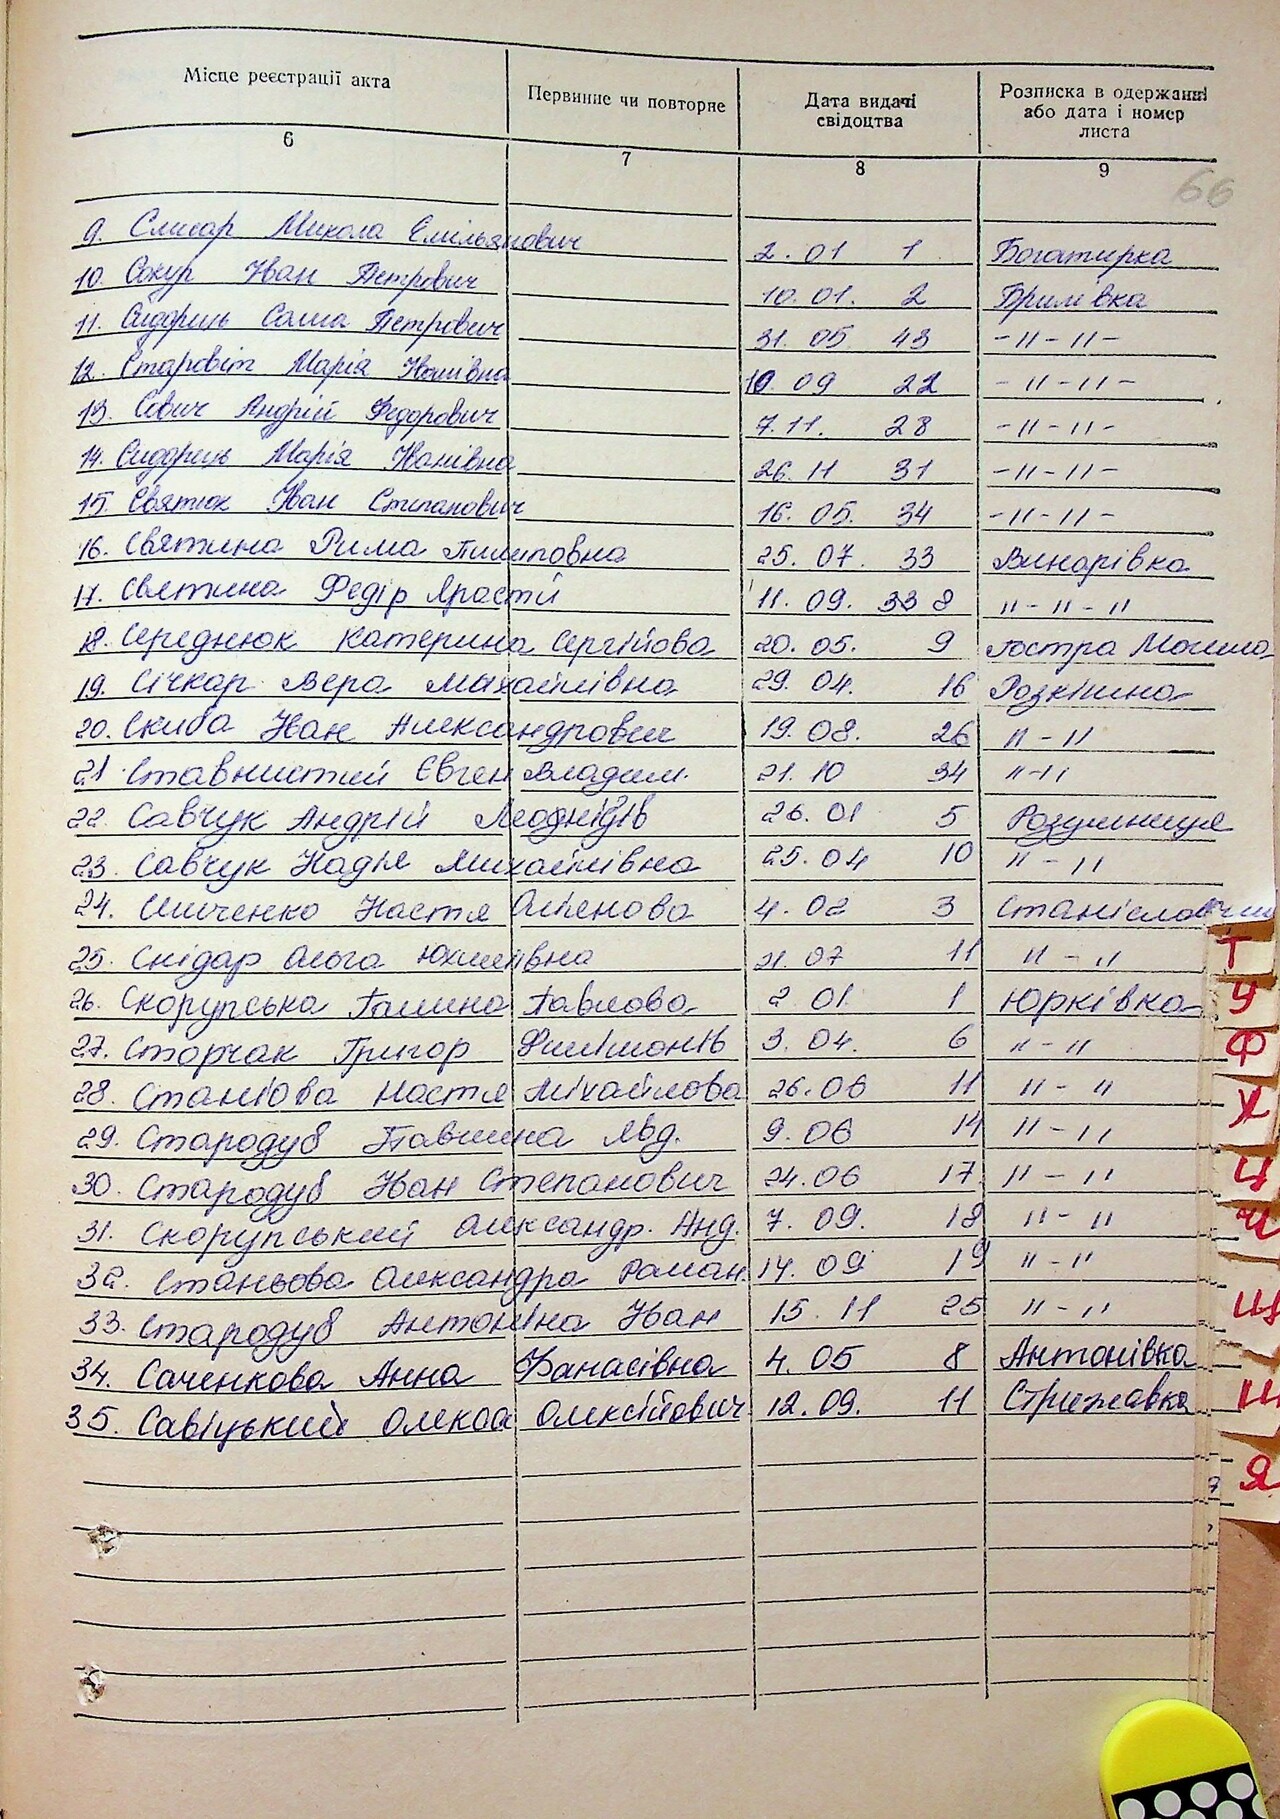 Місце реєстрації акта Первинне чи повторне Дата видачі свідоцтва Розписка в одержанні або дата і номер листа
6 7 8 9
66
9. Слисар Микола Ємільянович 2. 01 1 Богатирка
10. Сокур Іван Петрович 10. 01. 2 Бримівка
11. Сидорець Саша Петрович 31. 05 43 -"-"-
12. Старовіт Марія Іванівна 10. 09 22 -"-"-
13. Савич Андрій Федорович 7. 11. 28 -"-"-
14. Сидорець Марія Іванівна 26. 11 31 -"-"-
15. Святюк Іван Степанович 16. 05. 34 -"-"-
16. Святина Рима Пилиповна 25. 07. 33 Винарівка
17. Святина Федір Ярастій 11. 09. 33 8 "-"-"
18. Середнюк Катерина Сергійова 20. 05. 9 Гостра Могила
19. Січкар Вера Михайлівна 29. 04. 16 Розкішна
20. Скиба Іван Александрович 19. 08. 26 "-"
21. Ставнистий Євген Владим. 21. 10 34 "-"
22. Савчук Андрій Леонідів 26. 01 5 Розумниця
23. Савчук Надія Михайлівна 25. 04 10 "-"
24. Настя 4. 02 3
25. Снідар Ольга Юхимівна 21. 07 11 "-"
26. Скорупська Галина Павлова 2 01 1 Юрківка
27. Сторчак Григор Филімонів 3. 04. 6 "-"
28. Станіова Настя Міхайлова 26. 06 11 "-"
29. Стародуб Павлина Явд. 9. 06 14 "-"
30. Стародуб Іван Степанович 24. 06 17 "-"
31. Скорупський Александр. Анд. 7. 09. 18 "-"
32. Станьова Александра Роман. 14. 09 19 "-"
33. Стародуб Антоніна Іван 15. 11 25 "-"
34. Саченкова Анна Фанасівна 4. 05 8 Антонівка
35. Савіцький Олекса Олексійович 12. 09. 11 Стрижавка
Т
У
Ф
Х
Ц
Ч
Щ
Ш
Я